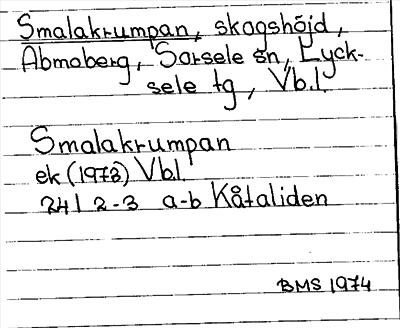 Smalakrumpan, skogshöjd,
Abmoberg, Sorsele sn, Lyck-
sele tg, Vb.l.
Smalakrumpan
ek (1973) Vbl.
24 I 2-3 a-b Kåtaliden
BMS 1974